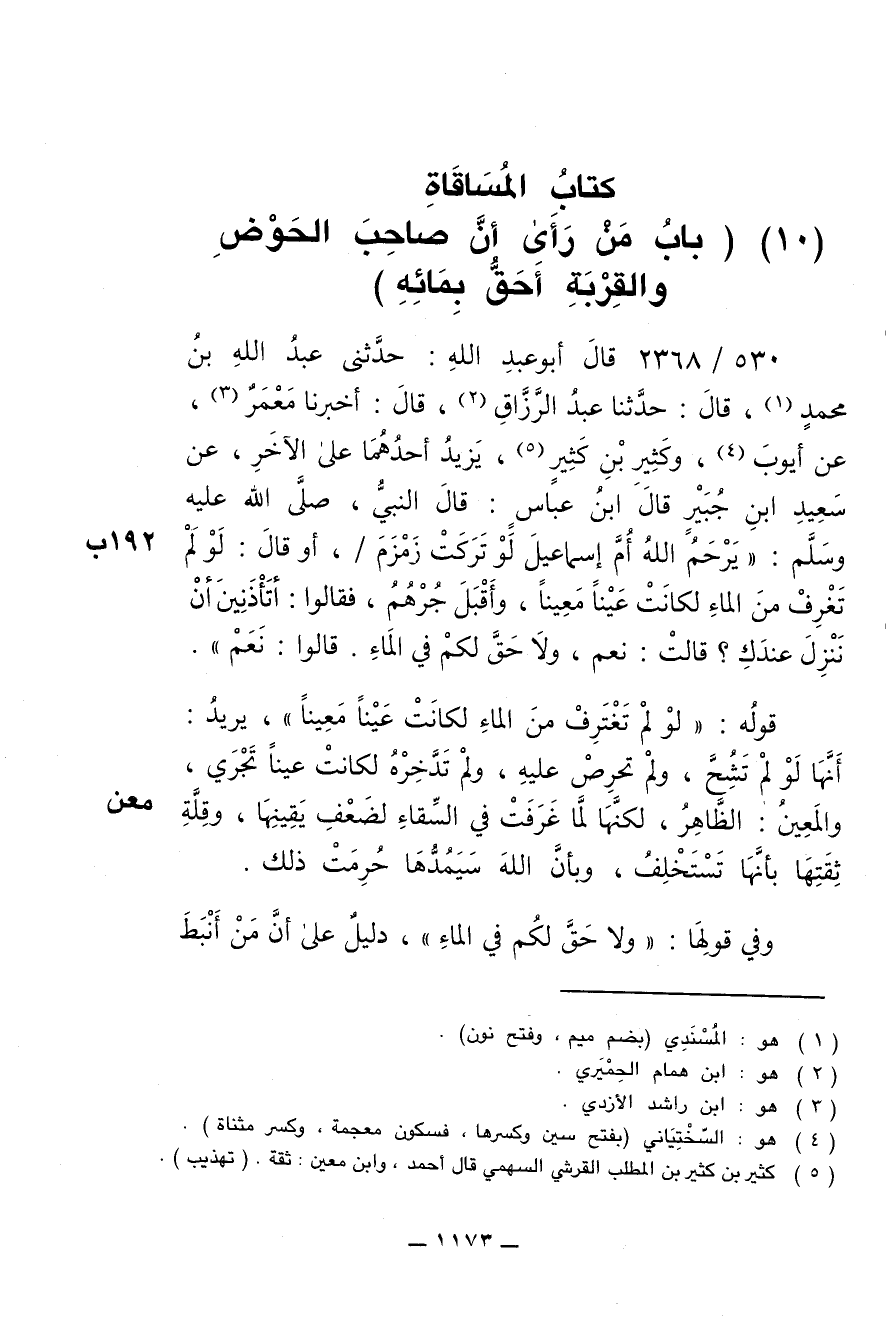 كتابُ المُسَاقَاةِ
(١٠) ( بابُ مَنْ رَأَىٰ أنَّ صاحِبَ الحَوْضِ
والقِرْبَةِ أَحَقُّ بِمَائِهِ )
٥٣٠ / ٢٣٦٨ قالَ أبوعبدِ اللهِ : حدَّثنى عبدُ اللهِ بنُ
محمدٍ (١) ، قالَ : حدَّثنا عبدُ الرَّزَّاقِ (٢) ، قالَ : أخبرنا مَعْمَرٌ (٣) ،
عن أيوبَ (٤) ، وكَثِيرِ بْنِ كَثِيرٍ (٥) ، يَزيدُ أحدُهُمَا علىٰ الآخَرِ ، عن
سَعِيدِ ابنِ جُبَيْرٍ قالَ ابنُ عباسٍ : قالَ النبيُّ ، صلَّى الله عليه
وسَلَّم : « يَرْحَمُ اللهُ أُمَّ إسماعيلَ لَوْ تَرَكَتْ زَمْزَمَ / ، أو قالَ : لَوْ لَمْ
١٩٢ب
تَغْرِفْ منَ الماءِ لكانَتْ عَيْناً مَعِيناً ، وأقْبَلَ جُرْهُمُ ، فقالوا : أتَأْذَنِينَ أنْ
نَنْزِلَ عندَكِ ؟ قالتْ : نعم ، ولاَ حَقَّ لكمْ في المَاءِ . قالوا : نَعَمْ » .
قولُه : « لوْ لمْ تَغْتَرِفْ منَ الماءِ لكانَتْ عَيْناً مَعِيناً » ، يريدُ :
أَنَّهَا لَوْ لمْ تَشُحَّ ، ولمْ تحرِصْ عليهِ ، ولمْ تَدَّخِرْهُ لكانتْ عيناً تَجْرَي ،
والمَعِينُ : الظَّاهِرُ ، لكنَّهَا لَمَّا غَرَفَتْ في السِّقاءِ لضَعْفِ يَقِينِهَا ، وقِلَّةِ
معن
ثِقَتِهَا بأنَّهَا تَسْتَخْلِفُ ، وبأنَّ اللهَ سَيَمُدُّهَا حُرِمَتْ ذلك .
وفي قولِهَا : « ولا حَقَّ لكُم في الماءِ » ، دليلٌ علىٰ أنَّ مَنْ أَنْبَطَ
(١) هو : المُسْنَدِي (بضم ميم ، وفتح نون) .
(٢) هو : ابن همام الحِمْيَري .
(٣) هو : ابن راشد الأزدي .
(٤) هو : السِّخْتِيَاني (بفتح سين وكسرها ، فسكون معجمة ، وكسر مثناة ) .
(٥) كثير بن كثير بن المطلب القرشي السهمي قال أحمد ، وابن معين : ثقة . ( تهذيب ) .
— ١١٧٣ —